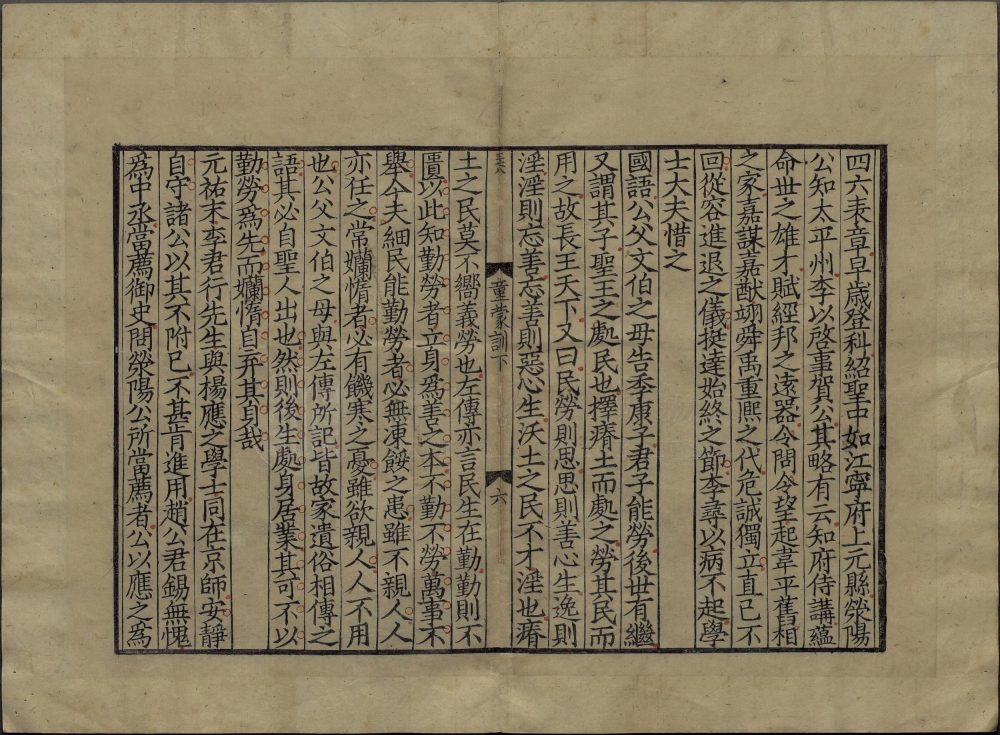 四六表章早歲登科紹聖中如江寧府上元縣滎陽
公知太平州李以啓事賀公其略有云知府侍講蘊
命世之雄才賦經邦之遠器令問令望起韋平舊相
之家嘉謀嘉猷翊舜禹重熙之代危誠獨立直已不
回從容進退之儀挺達始終之節李尋以病不起學
士大夫惜之
國語公父文伯之母告季康子君子能勞後世有繼
又謂其子聖王之處民也擇瘠土而處之勞其民而
用之故長王天下又曰民勞則思思則善心生逸則
淫淫則忘善忘善則惡心生沃土之民不才淫也瘠
童蒙訓下
六
土之民莫不嚮義勞也左傳亦言民生在勤勤則不
匱以此知勤勞者立身爲善之本不勤不勞萬事不
舉今夫細民能勤勞者必無凍餒之患雖不親人人
亦任之常嬾惰者必有饑寒之憂雖欲親人人不用
也公父文伯之母與左傳所記皆故家遺俗相傳之
語其必自聖人出也然則後生處身居業其可不以
勤勞爲先而嬾惰自弃其身哉
元祐末李君行先生與楊應之學士同在京師安靜
自守諸公以其不附已不甚肯進用趙公君錫無愧
爲中丞當薦御史問滎陽公所當薦者公以應之爲